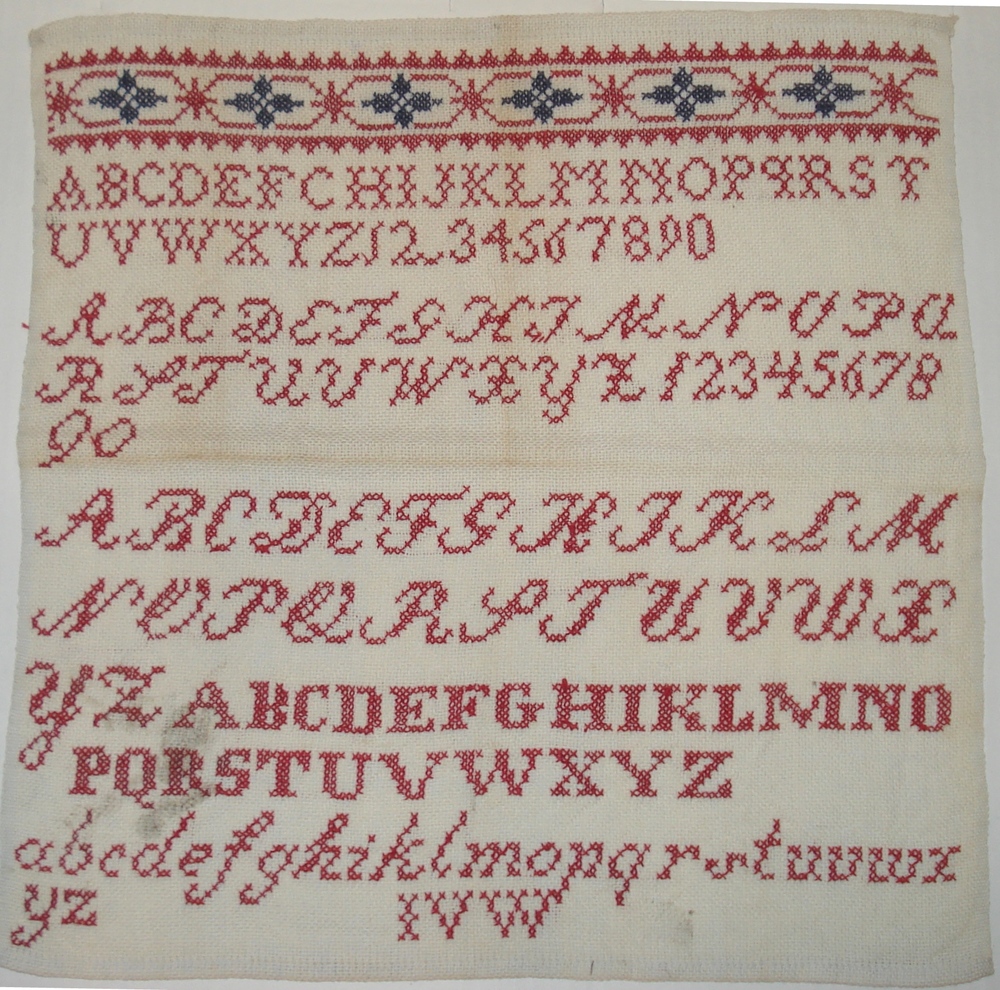 ABCDEFGHIJKLMNOPQRST
UVWXYZ1234567890
ABCDEFGHIMNOPQ
RSTUVWXYZ12345678
90
ABCDEFGHIKLM
NOPQRSTUVWX
YZ ABCDEFGHIKLMNO
PQRSTUVWXYZ
abcdefghiklmopqrstuvwx
yz IVW